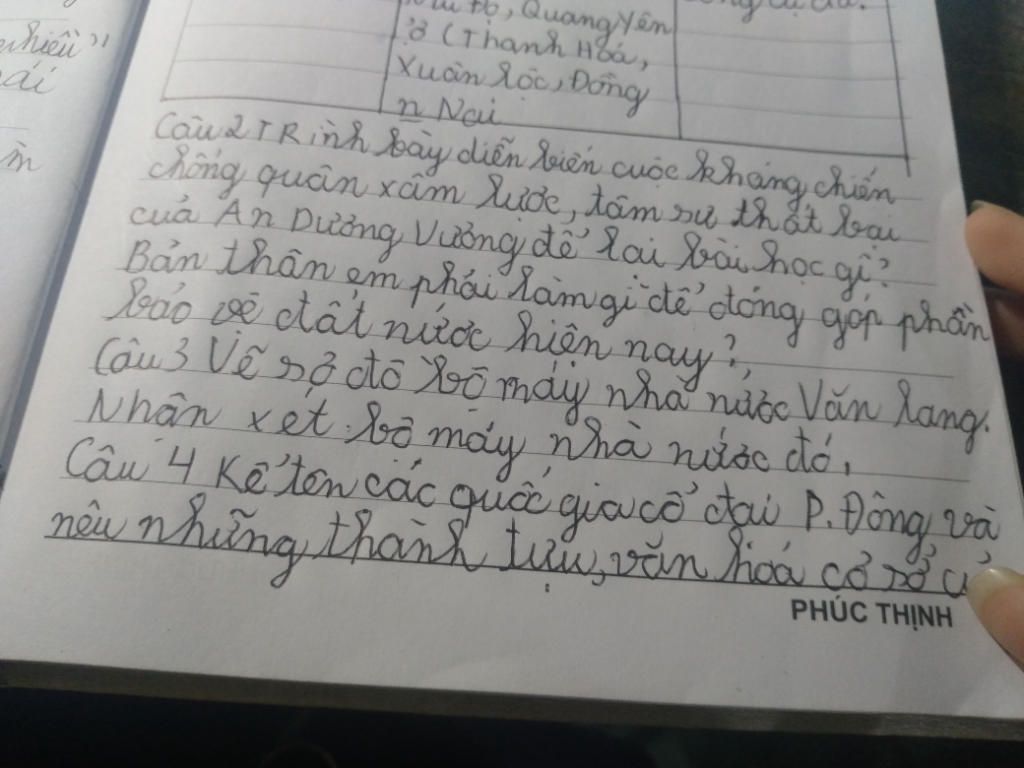 hiểu"
ái
ìm
Quang Yên
ở (Thanh Hoá,
Xuân Lộc, Đồng
n Nai
Câu 2 TRình bày diễn biến cuộc kháng chiến
chống quân xâm lược, tâm sự thất bại
cuả An Dương Vương để lại bài học gì?
Bản thân em phải làm gì để đóng góp phần
bảo vệ đất nước hiện nay?
Câu 3 Vẽ sơ đồ bộ máy nhà nước Văn Lang.
Nhận xét bộ máy nhà nước đó.
Câu 4 Kể tên các quốc gia cổ đại P. Đông và
nêu những thành tựu, văn hoá cơ sở ở
PHÚC THỊNH